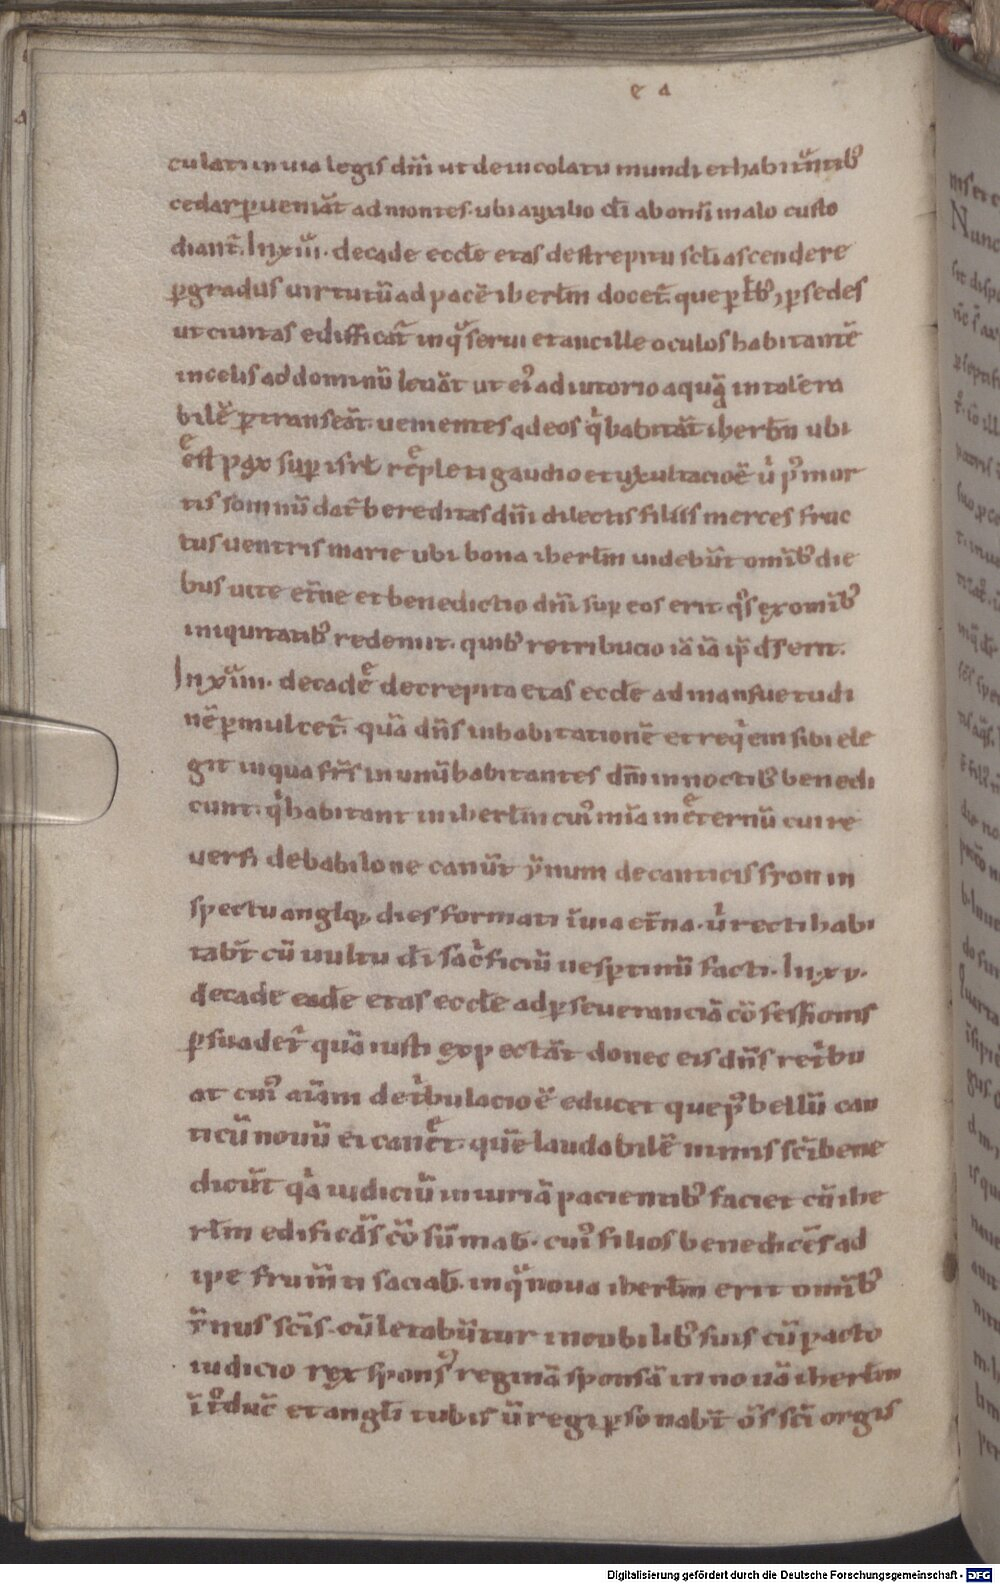 e a
culati in uia legis dñi ut de incolatu mundi et habitãntib⁹
cedar ꝑueniãt ad montes· ubi auxilio di ab omi malo custo
diant᷑. In xiii· decade eccle etas de strepitu scli ascendere
ꝑ gradus uirtutũ ad pacẽ iherlm docet᷑. que ꝑ sedes
ut ciuitas edifficat᷑ in q̃ serui et ancille oculos habitantẽ
in celis ad dominũ leuãt ut ei⁹ ad iutorio aquã in tolera
bilẽ ꝑtranseãt· uenientes ad eos q habitãt iherlm ubi
est pax suꝑ isrl repleti gaudio et exultacioẽ
tis somnũ dat᷑ hereditas dñi dilectis filiis merces fruc
tus uentris marie ubi bona iherlm uidebũt omib⁹ die
bus uite et̃ne et benedictio dñi suꝑ eos erit· q̃s ex omib⁹
iniquitatib⁹ redemit· quib⁹ retribucio iã iã ip̃ ds erit.
In xiiii· decade decrepita etas eccle ad mansuetudi
nẽ ꝑmulcet᷑. quã dñs inhabitationẽ et req̃em sibi ele
git in qua frẽs in unũ habitantes dm̃ in noctib⁹ benedi
cunt· q habitant in iherlm cui⁹ mĩa in ęternũ cui re
uersi de babilone canũt ymnum de canticis syon in
spectu angloꝝ, dies formati ĩ uia et̃na· ũ recti habi
tabt̃ cũ uultu di sacficiũ uesꝑtinũ facti. In· xv·
decade eade etas eccle ad ꝑseueranciã cõfessionis
ꝑsuadet᷑ quã iusti expectãt donec eis dñs ret̃bu
at cui⁹ aĩam de t̃bulacioẽ educet que p⁹ bellũ can
ticũ nouũ ei canẽt· quẽ laudabilẽ nimis scĩ bene
dicũt q̃a iudiciũ iniuriã pacientib⁹ faciet cũ ihe
rlm edificãs cõsũmab̃· cui⁹ filios benedicẽs ad
ipe frumti saciab̃. in q̃ noua iherlm erit omib⁹
ymnus scĩs· cũ letabũtur in cubilib⁹ suis cũ ꝑacto
iudicio rex spons⁹ reginã sponsã in nouã iherlm
ĩt⁹duc̃ et angli tubis ũ regi ꝑsonabt̃ õs scĩ orgis
Digitalisierung gefördert durch die Deutsche Forschungsgemeinschaft - DFG